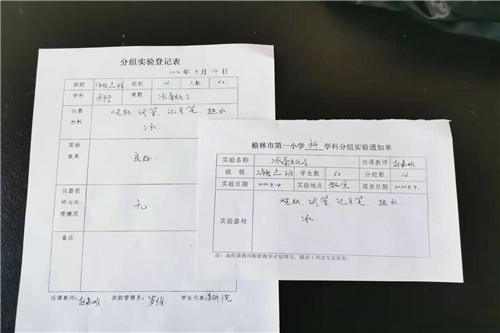 分组实验登记表
年 9 月 14 日
班级 组别 12 人数 60
学科 科学 课题 冰融化了
仪器
材料
烧杯、试管、记号笔、热水
冰
实验
效果
良好
仪器损
坏与处
理情况
无
备注
任课教师: 实验管理员: 学生代表
榆林市第一小学 科 学科分组实验通知单
实验名称 冰融化了 任课教师
班级 学生数 60 分组数 12
实验日期 2020.9.14 实验地点 教室 填表日期 2020.9.9
实验器材
烧杯、试管、记号笔、热水
冰
注:由任课教师根据教学计划填写,提前1周送实验室。